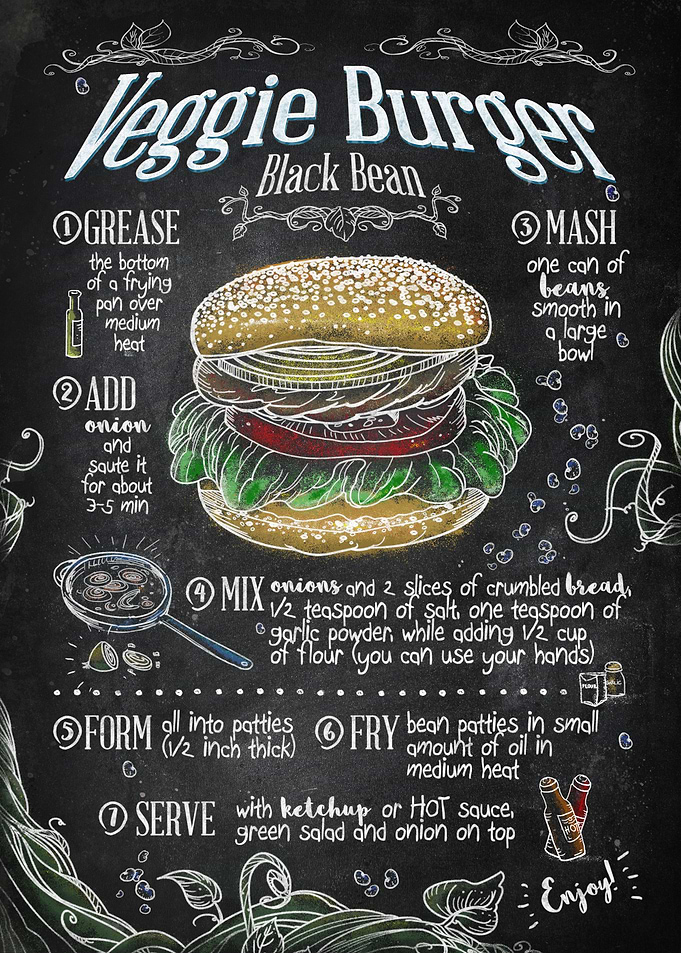 Veggie Burger
Black Bean
1 GREASE
the bottom
of a frying
pan over
medium
heat
2 ADD
onion
and
saute it
for about
3-5 min
3 MASH
one can of
beans
smooth in
a large
bowl
4 MIX onions and 2 slices of crumbled bread,
1/2 teaspoon of salt, one teaspoon of
garlic powder, while adding 1/2 cup
of flour (you can use your hands)
FLOUR
GARLIC
5 FORM all into patties
(1/2 inch thick)
6 FRY bean patties in small
amount of oil in
medium heat
7 SERVE with ketchup or HOT sauce,
green salad and onion on top
HOT
Enjoy!